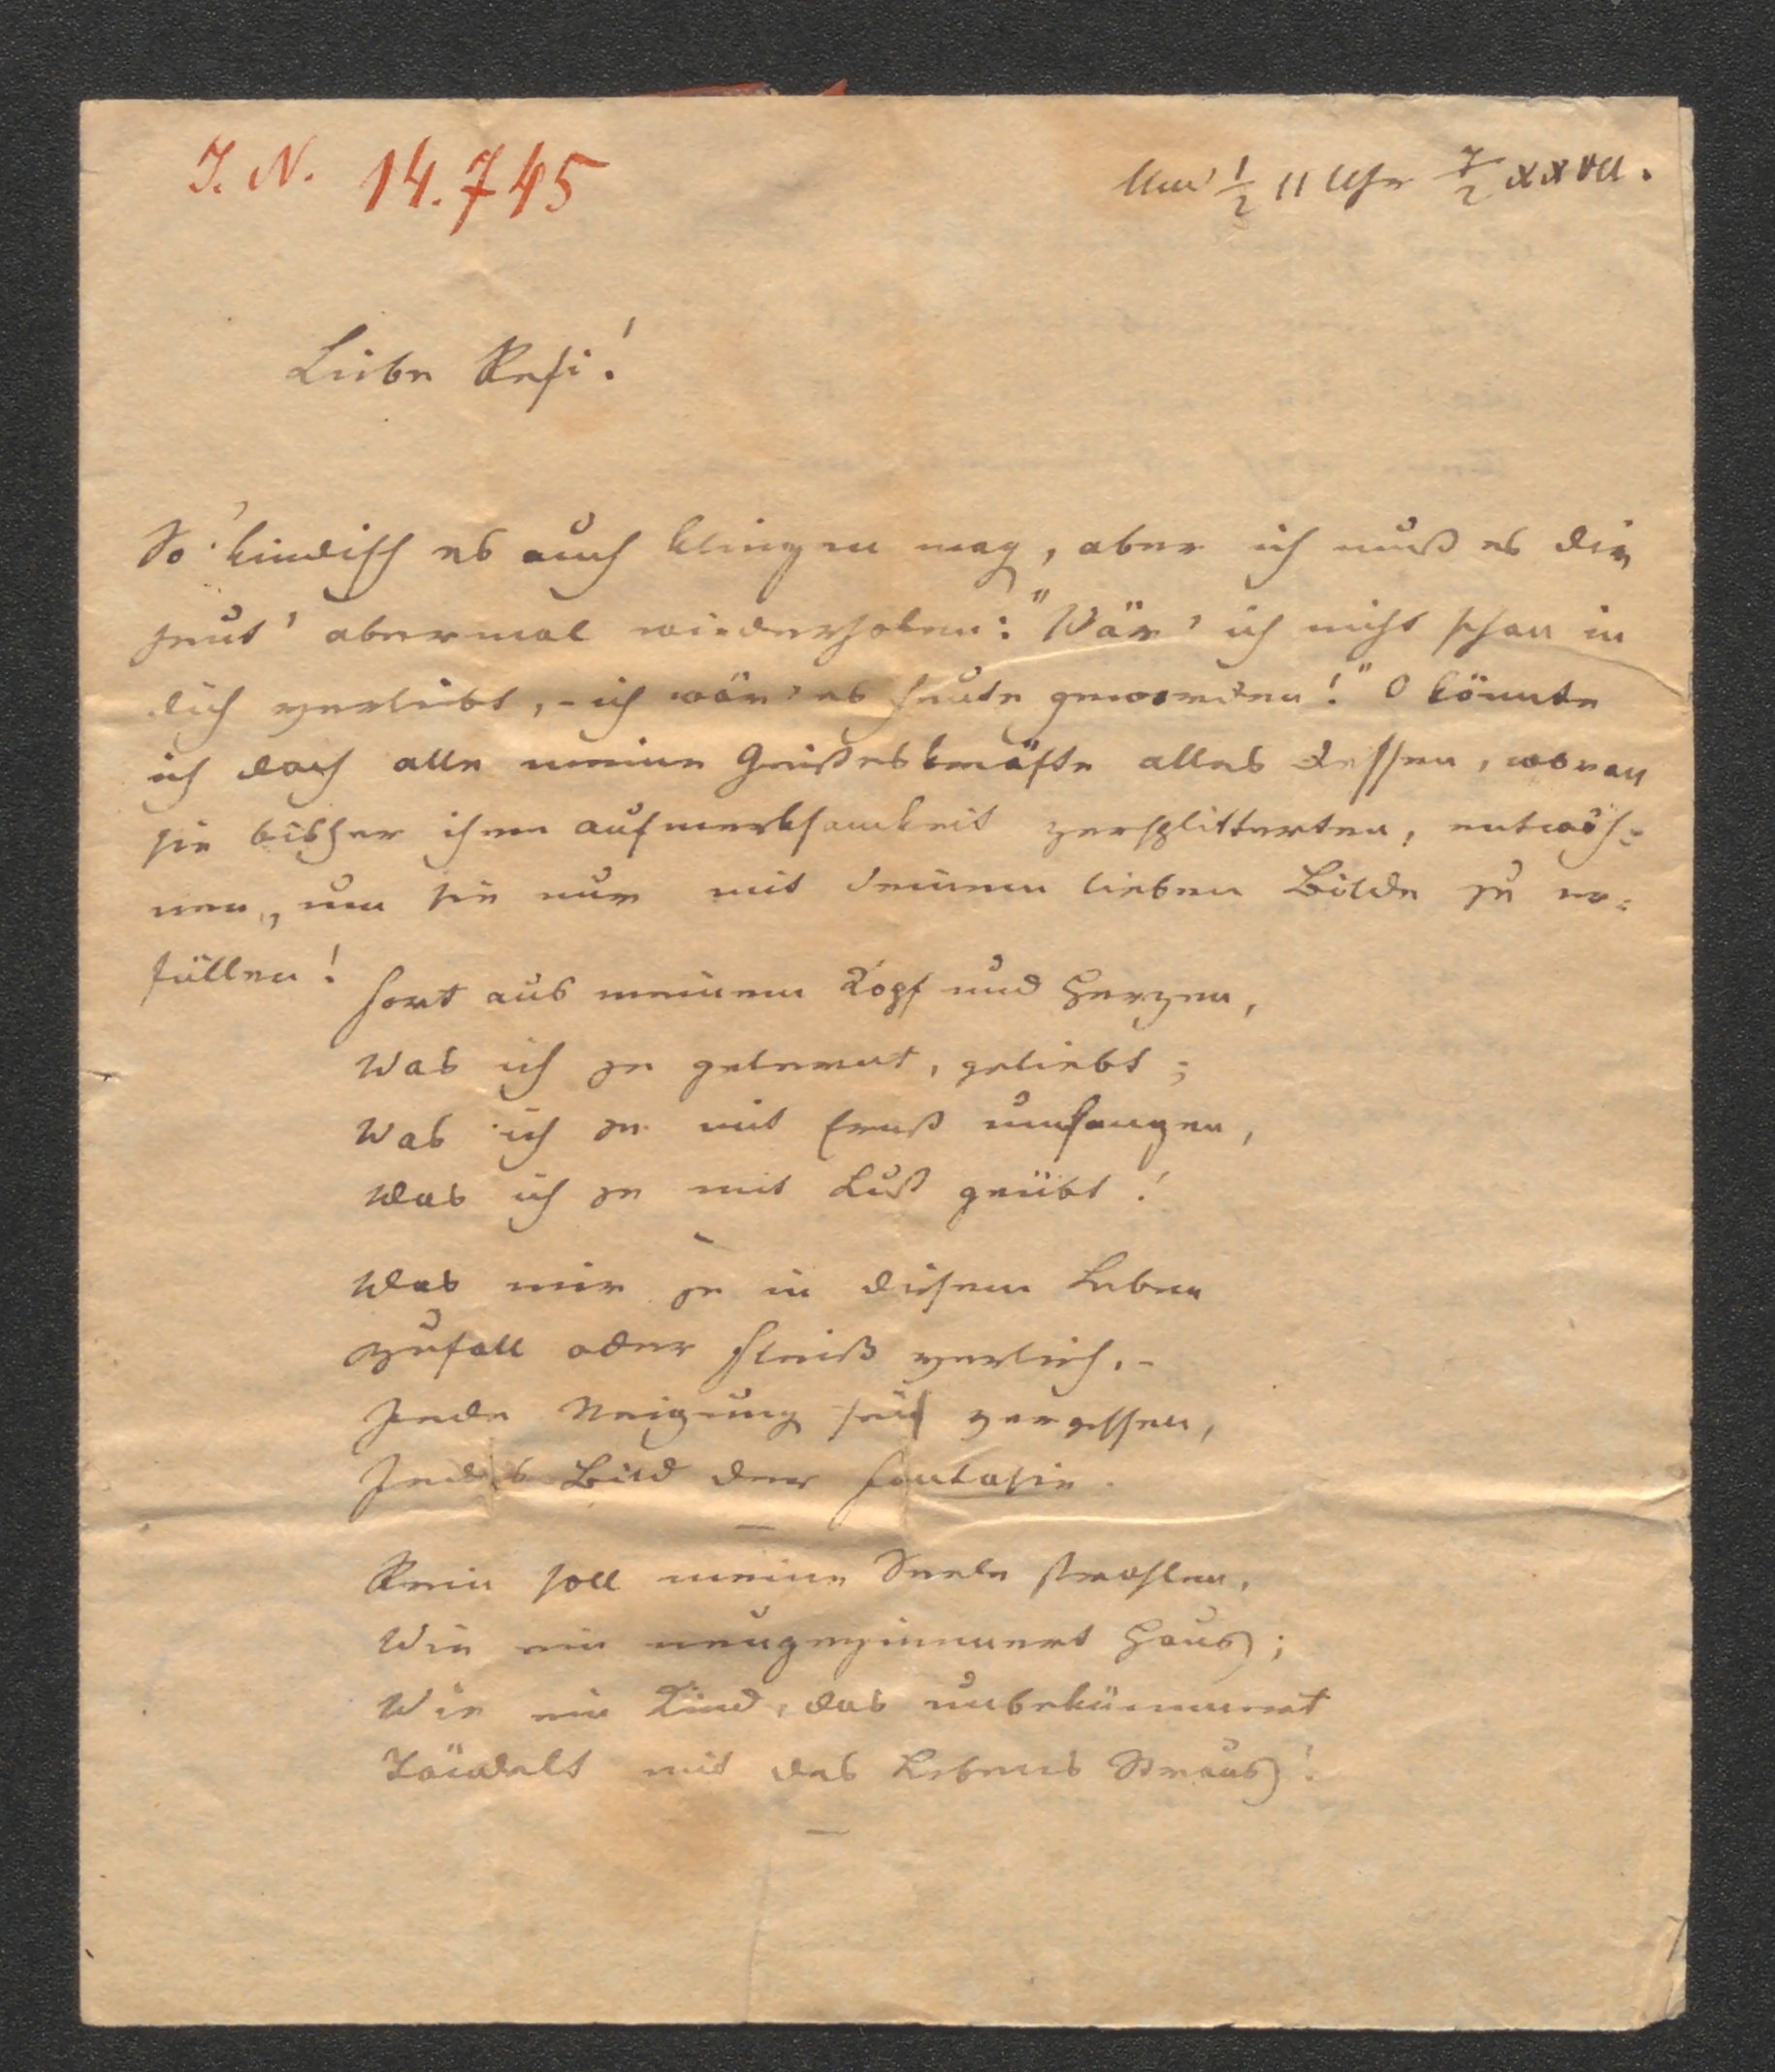 I. N. 14.745
Um ½ 11 Uhr 7/2 XXVII.
Liebe Resi!
So kindisch es auch klingen mag, aber ich muß es dir
heut' abermal wiederholen: "Wär' ich nicht schon in
dich verliebt, - ich wär' es heute geworden!" O könnte
ich doch alle meine Geisteskräfte alles dessen, woran
sie bisher ihre aufmerksamkeit zersplitterten, entwöh=
nen, um sie nur mit deinem lieben Bilde zu er=
füllen!
Fort aus meinem Kopf und Herzen,
Was ich je gelernt, geliebt;
Was ich je mit Ernst umfangen,
Was ich je mit Lust geübt!
Was mir je in diesem Leben
Zufall oder Fleiß verlieh, -
Jede Neigung sei vergessen,
Jedes Bild der Fantasie.
Rein soll meine Seele strahlen,
Wie ein neugezimmert Haus;
Wie ein Kind, das unbekümmert
Tändelt mit des Lebens Straus!